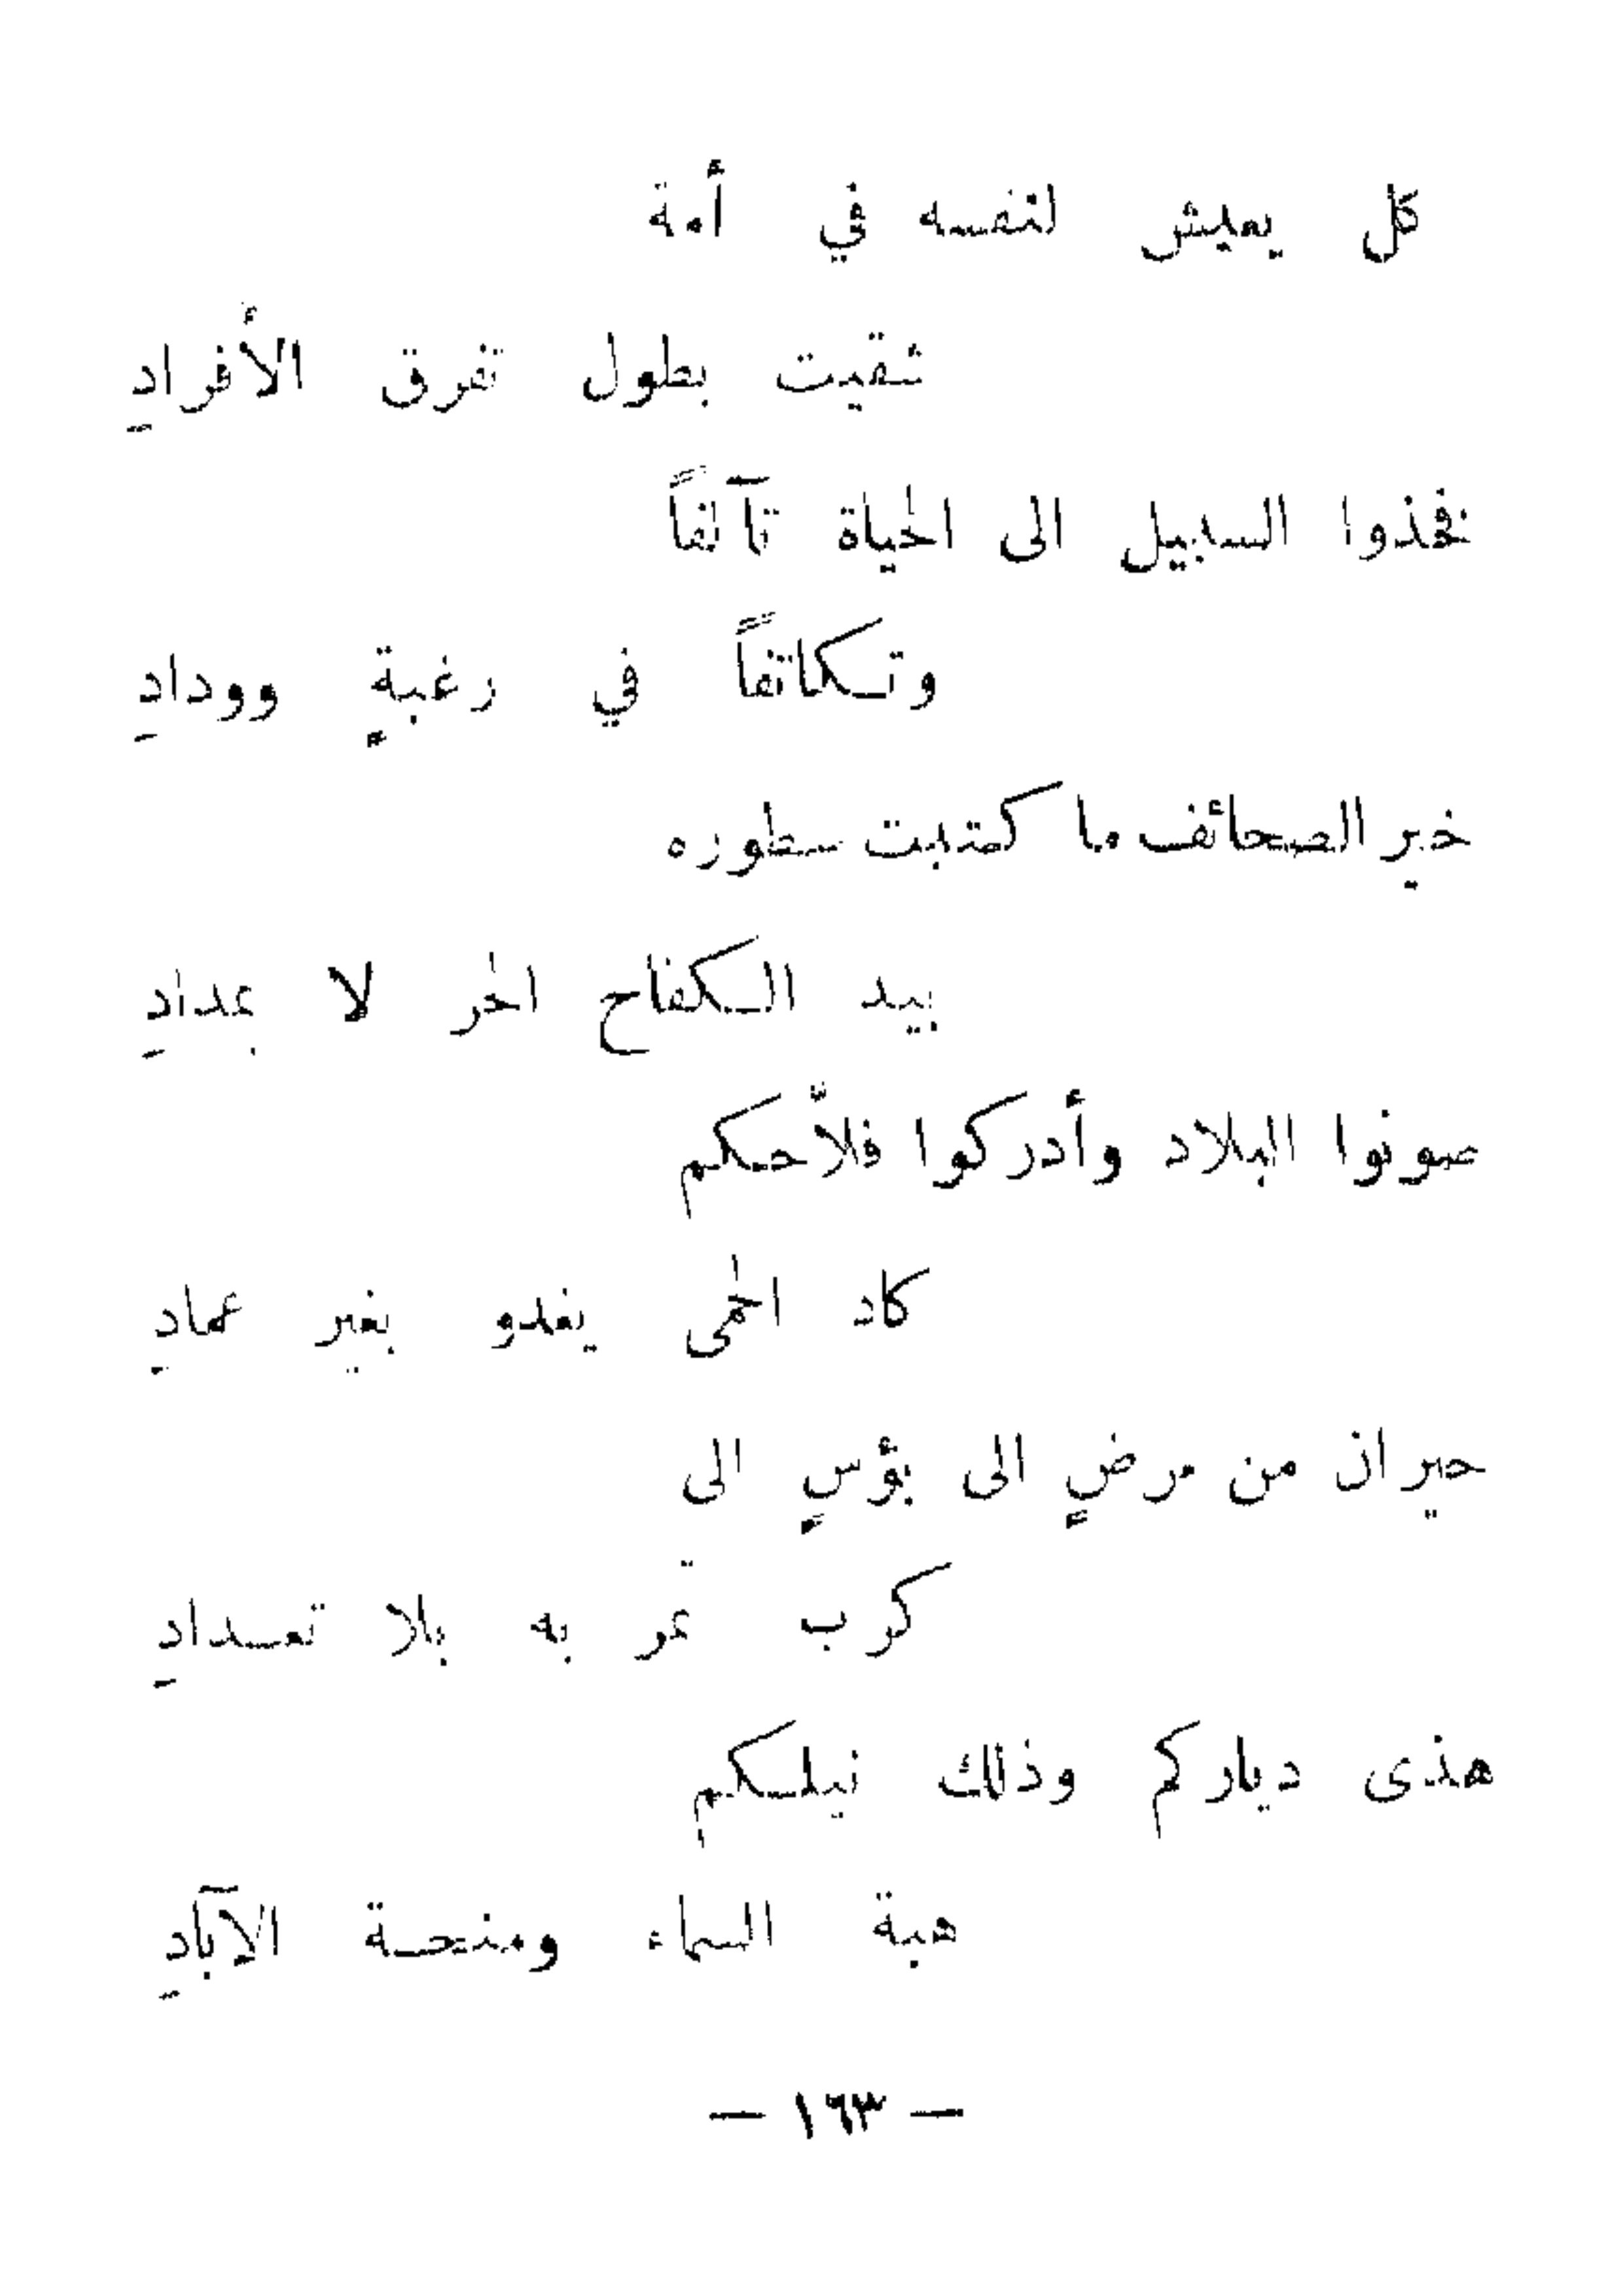 كل يعيش لنفسه في أمة
شقيت بطول تفرق الأفرادِ
فخذوا السبيل الى الحياة تآلفاً
وتكاتفاً في رغبةٍ وودادِ
خير الصحائف ما كتبت سطوره
بيد الكفاح الحر لا بمدادِ
صونوا البلاد وأدركوا فلاّحكم
كاد الحمى يغدو بغير عمادِ
حيران من مرضٍ الى بؤسٍ الى
كرب تمر به بلا تعدادِ
هذى دياركم وذلك نيلكم
هبة السماء ومنحة الآبادِ
— ١٦٣ —